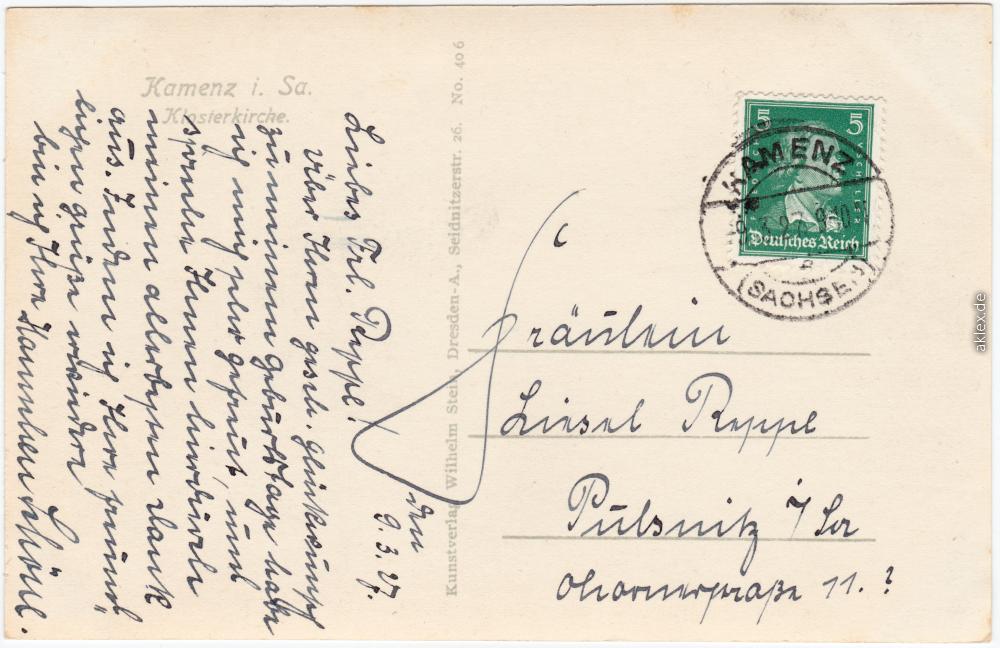 Kamenz i. Sa.
Klosterkirche.
den
9. 3. 27.
Liebes Frl. Reppe!
Über Ihren gesch. Glückwunsch
zu meinem Geburtstage habe
ich mich sehr gefreut, und
spreche Ihnen hierdurch
meinen allerbesten Dank
aus. Indem ich Ihre freund-
lichen Grüße erwidere
bin ich Ihre Hannchen Schöne.
Kunstverlag Wilhelm Stein, Dresden-A., Seidnitzerstr. 26. No. 406
5 5
Deutsches Reich
KAMENZ
(SACHSEN)
Fräulein
Liesel Reppe
Pulsnitz i/Sa
Ohornerstraße 11.?
aklex.de